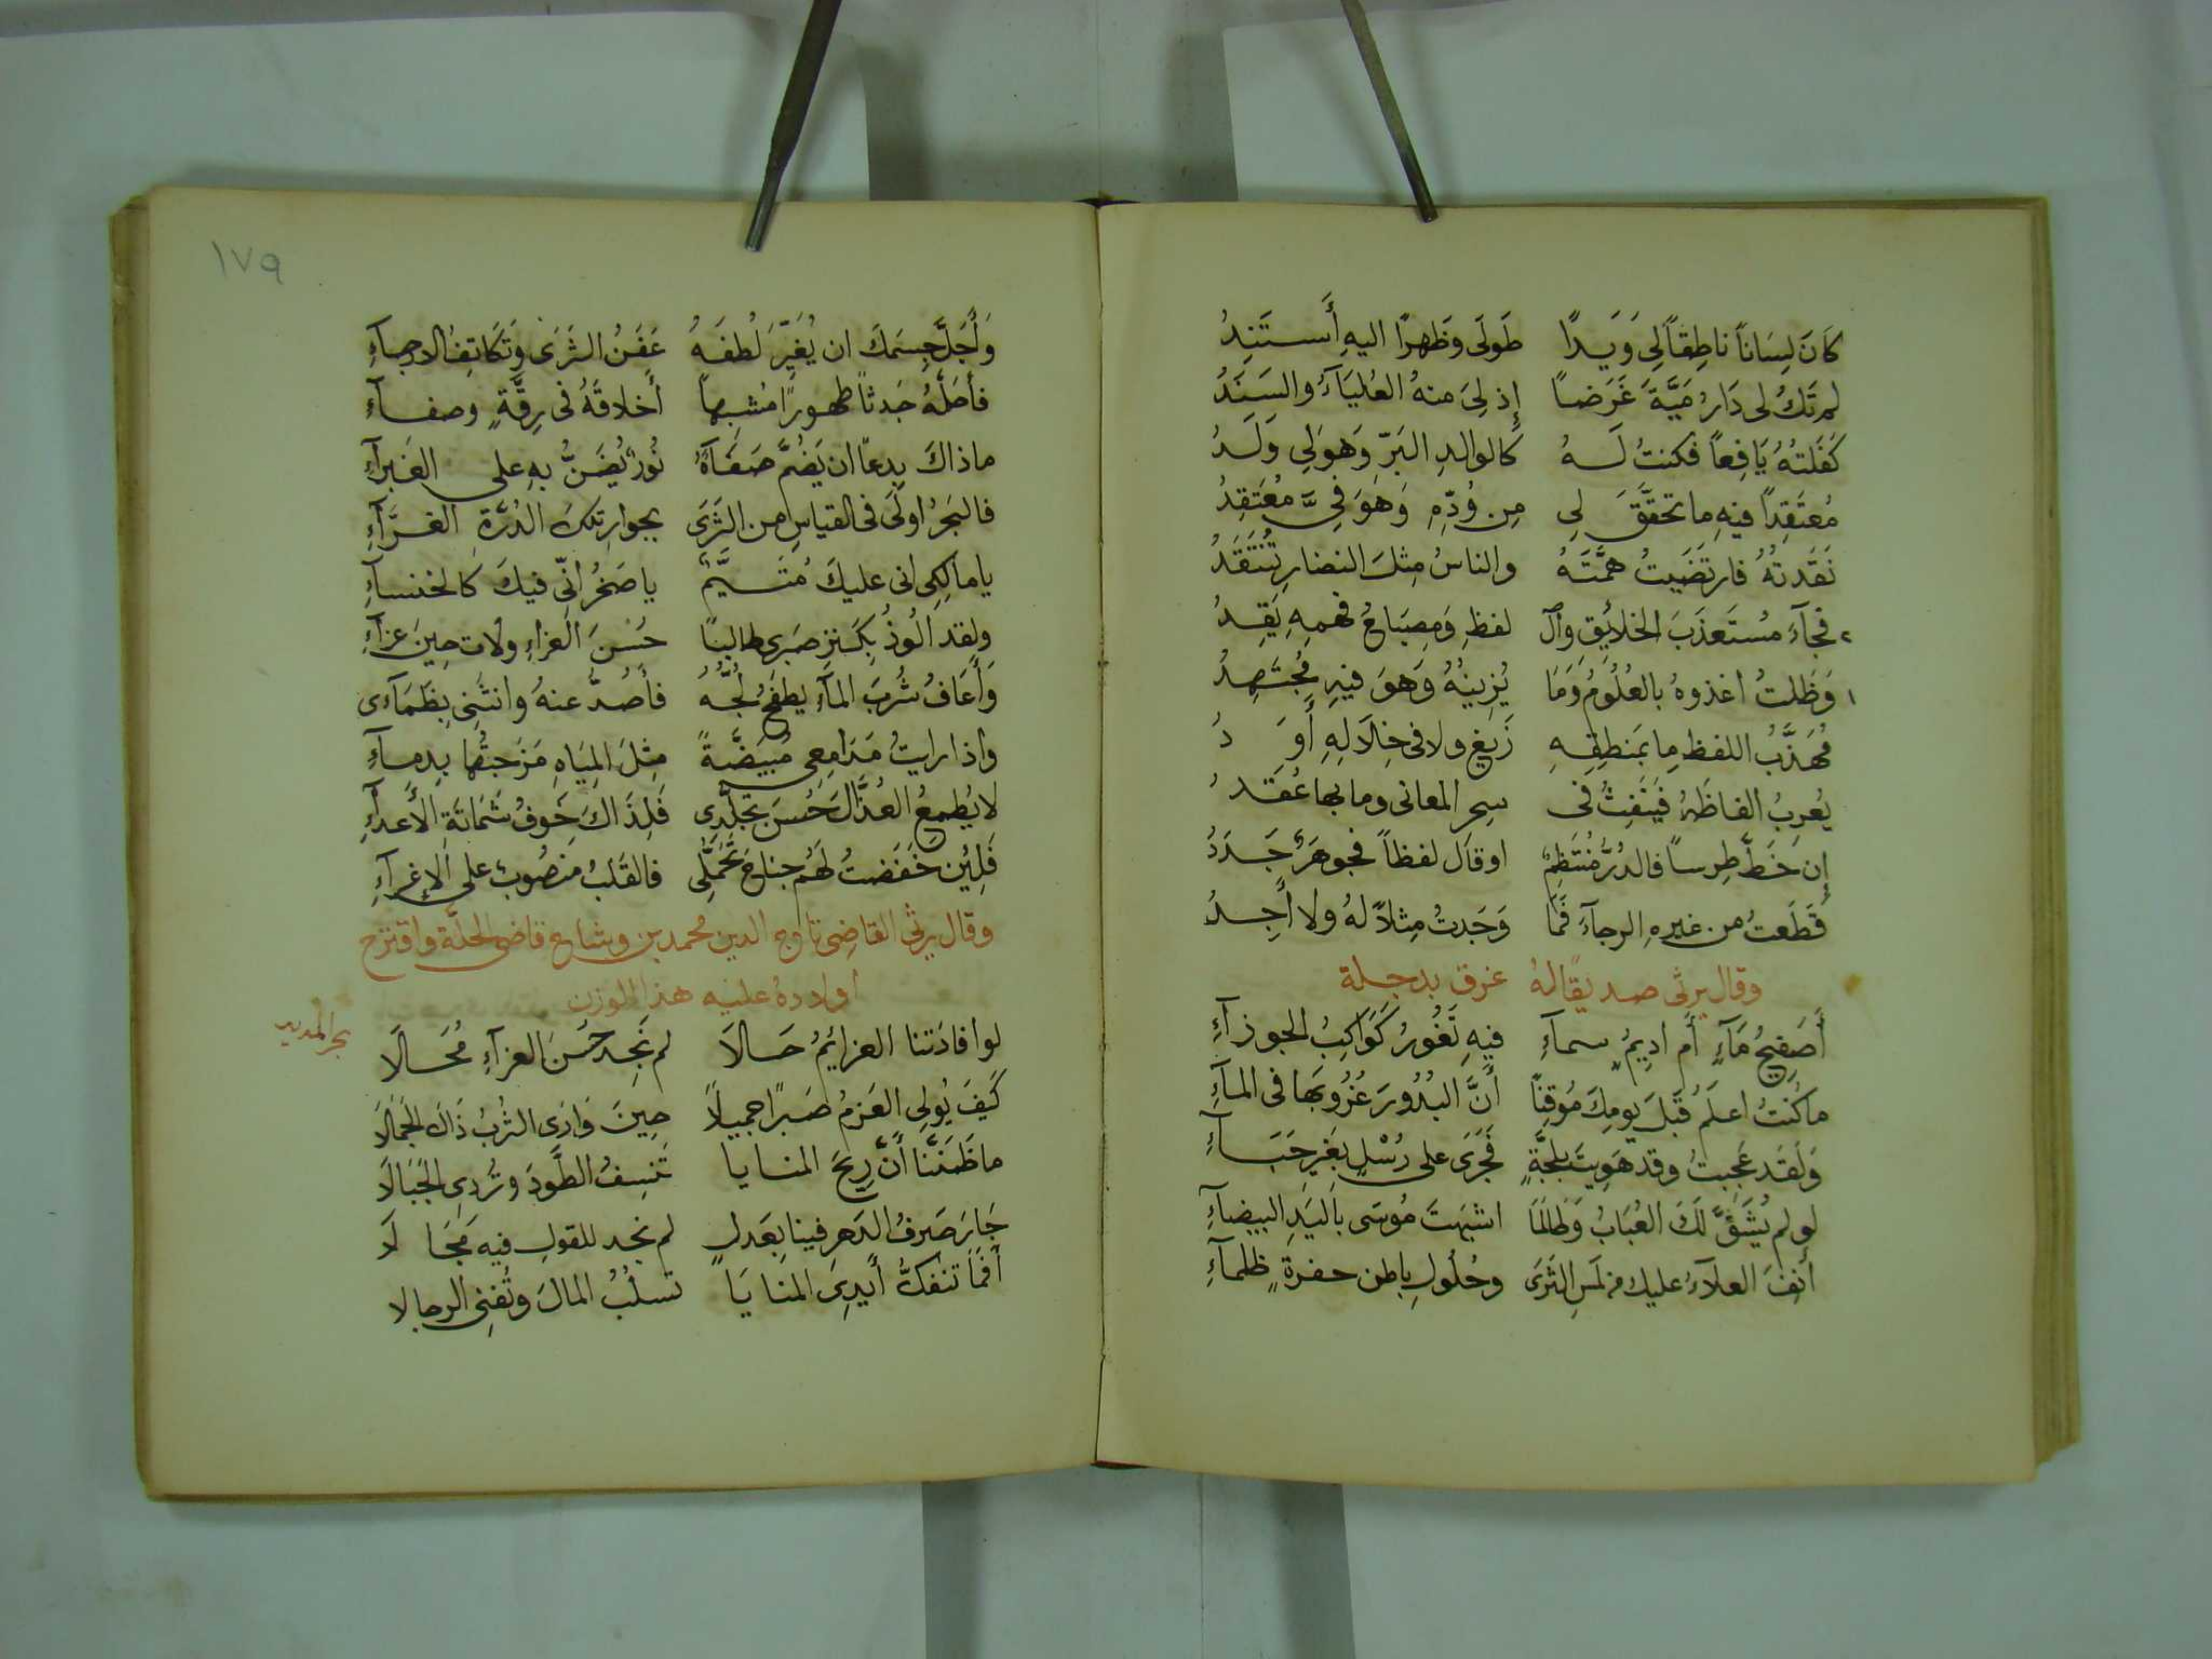 كَانَ لِسَاناً ناطِقاً لِي وَيَدًا طَولَى وظَهرًا اليهِ أَستَنِدُ
لم تَكُ لى دَارُ مَيَّةَ غَرَضاً إِذ لِىَ منهُ العُليَآءُ والسَنَدُ
كَفَلتُهُ يَافِعاً فكنتُ لَهُ كالوالدِ البَرّ وَهوَ لِي وَلَدُ
مُعتَقِدًا فيهِ ما تحقَّقَ لِي مِن وُدِّهِ وَهوَ فِيَّ مُعتَقِدُ
نَقَدتُهُ فارتَضَيتُ هِمَّتَهُ والناسُ مِثلَ النضارِ تُنتَقَدُ
٢ فجآءَ مُستَعذَبَ الخلائِقِ وآل لفظِ وَمِصبَاحُ فهمِهِ يَقِدُ
١ وَظَلتُ اغذوهُ بالعُلُومُ وَمَا يُزِينُهُ وَهوَ فيهِ مُجتَهِدُ
مُهَذَّبُ اللفظِ ما بمَنطِقِهِ زَيغ ولا فى خِلَالِهِ أَوَدُ
يُعرِبُ الفاظَهُ فَيَنفِثُ فى سِحرِ المعانى وما بها عُقَدُ
إِن خَطَّ طِرساً فالدُرُّ مُنتَظِمٌ او قال لفظاً فجوهَرٌ جَدَدُ
قَطَعتُ من غيرِهِ الرجآءَ فَمَا وَجَدتُ مِثلاً لهُ ولا أَجِدُ
وقال يرثى صديقًا لهُ غرق بدجلة
أَصَفِيحُ مَآءٍ أَم اديمُ سمآءِ فيهِ تَغُورُ كَوَاكِبُ الجوزآءِ
ما كُنتُ اعلَمُ قَبلَ يومِكَ مُوقِنًا أَنَّ البُدُورَ غُرُوبُها فى المآءِ
وَلَقَد عَجِبتُ وقد هَوِيتَ بلُجَّةٍ فَجَرَى على رُسْلٍ بغَيرِ حَبَآءِ
لو لم يُشَقَّ لَكَ العُبَابُ وَطَالَمَا اشبَهتَ مُوسَى باليَدِ البيضآءِ
أَنِفَ العلآءُ عليك من لَمسِ الثَرَى وحُلُولِ باطن حفرةٍ ظلمآءِ
١٧٩
وَأَجَلَّ جِسمَكَ ان يُغَيِّرَ لُطفَهُ عَفَنُ الثَرَى وَتَكَاتفُ الارجآءِ
فأَحَلَّهُ جَدثاً طهورًا مُشبِهاً أَخلاقَهُ فى رِقَّةٍ وصفآءِ
ما ذاكَ بِدعاً ان يَضُمَّ صَفَآؤُهُ نُورٌ يُضَنُّ بهِ على الغَبرآءِ
فالبَحرُ اولَى فى القياسِ من الثَرَى بجوارِ تلكَ الدُرَّةِ الغرَّآءِ
يا مالِكِى انى عليكَ مُتَيَّمٌ يا صَخرُ انِّى فيكَ كالخنسآءِ
ولقد الُوذُ بِكَنزِ صَبرى طالبًا حُسنَ العزاءِ ولات حِينَ عزآءِ
وَأَعَافُ شُربَ المآءِ يطفَحُ لُجُّهُ فأَصُدُّ عنهُ وانثَنِى بظَمَآءى
واذا رايتُ مَدَامِعِى مُبيَضَّةً مِثلَ المِيَاهِ مَزَجتُها بدِمآءِ
لا يُطمِعُ العُذَّالَ حُسنَ تجَلُّدِى فَلِذَاكَ خَوفُ شَمَاتَةِ الأَعدآءِ
فَلَئِن خَفَضتُ لَهُم جناحَ تَحَمُّلِى فالقَلبُ منصُوبٌ على الإِغرآءِ
وقال يرثى القاضِى تاج الدين محمد بن وشاح قاضى الحلَّة واقترح
اولادهُ عليه هذا الوزن
بحر المديد
لو افادَتنا العزائِمُ حَالَا لم نَجِد حُسنَ العزآءِ مُحَالَا
كَيفَ يُولى العَزمُ صَبرًا جميلاً حِينَ وَارَى التُربُ ذَاكَ الجَمَالَا
ما ظَنَنَّا أَنَّ رِيحَ المنايا تَنسِفُ الطَّودَ وتُردِى الجِبَالَا
جَارَ صَرفُ الدَهرِ فينا بِعَدلٍ لم نجد للقولِ فيه مَجَالا
أَفَمَا تنفكُّ أَيدِى المنايَا تسلُبُ المالَ وتُفنِى الرجالا